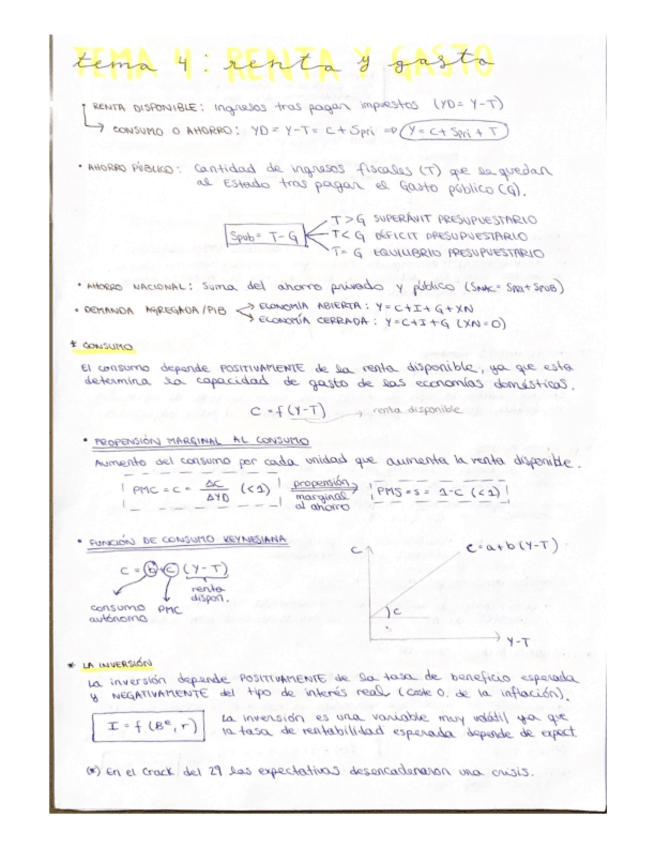 tema 4: renta y gasto
· RENTA DISPONIBLE: Ingresos tras pagar impuestos (YD= Y-T)
→ CONSUMO O AHORRO: YD = Y-T = C + Spri => Y = C + Spri + T
· AHORRO PÚBLICO: Cantidad de ingresos fiscales (T) que le quedan
al Estado tras pagar el Gasto público (G).
Spub = T-G
T>G SUPERÁVIT PRESUPUESTARIO
T<G DÉFICIT PRESUPUESTARIO
T=G EQUILIBRIO PRESUPUESTARIO
· AHORRO NACIONAL: Suma del ahorro privado y público (SNAC= SPRI+SPUB)
· DEMANDA AGREGADA/PIB → ECONOMÍA ABIERTA: Y=C+I+G+XN
→ ECONOMÍA CERRADA: Y=C+I+G (XN=0)
* CONSUMO
El consumo depende POSITIVAMENTE de la renta disponible, ya que esta
determina la capacidad de gasto de las economías domésticas.
C = f (Y-T) → renta disponible
· PROPENSIÓN MARGINAL AL CONSUMO
Aumento del consumo por cada unidad que aumenta la renta disponible.
PMC = C = ΔC/ΔYD (<1) propensión marginal al ahorro → PMS = s = 1-C (<1)
· FUNCIÓN DE CONSUMO KEYNESIANA
C = (Y-T)
renta
dispon.
consumo autónomo
PMC
C
C=a+b(Y-T)
C
Y-T
* LA INVERSIÓN
La inversión depende POSITIVAMENTE de la tasa de beneficio esperada
y NEGATIVAMENTE del tipo de interés real (coste O. de la inflación).
I = f (Bᵉ, r)
La inversión es una variable muy volátil ya que
la tasa de rentabilidad esperada depende de expect.
(*) En el Crack del 29 las expectativas desencadenaron una crisis.